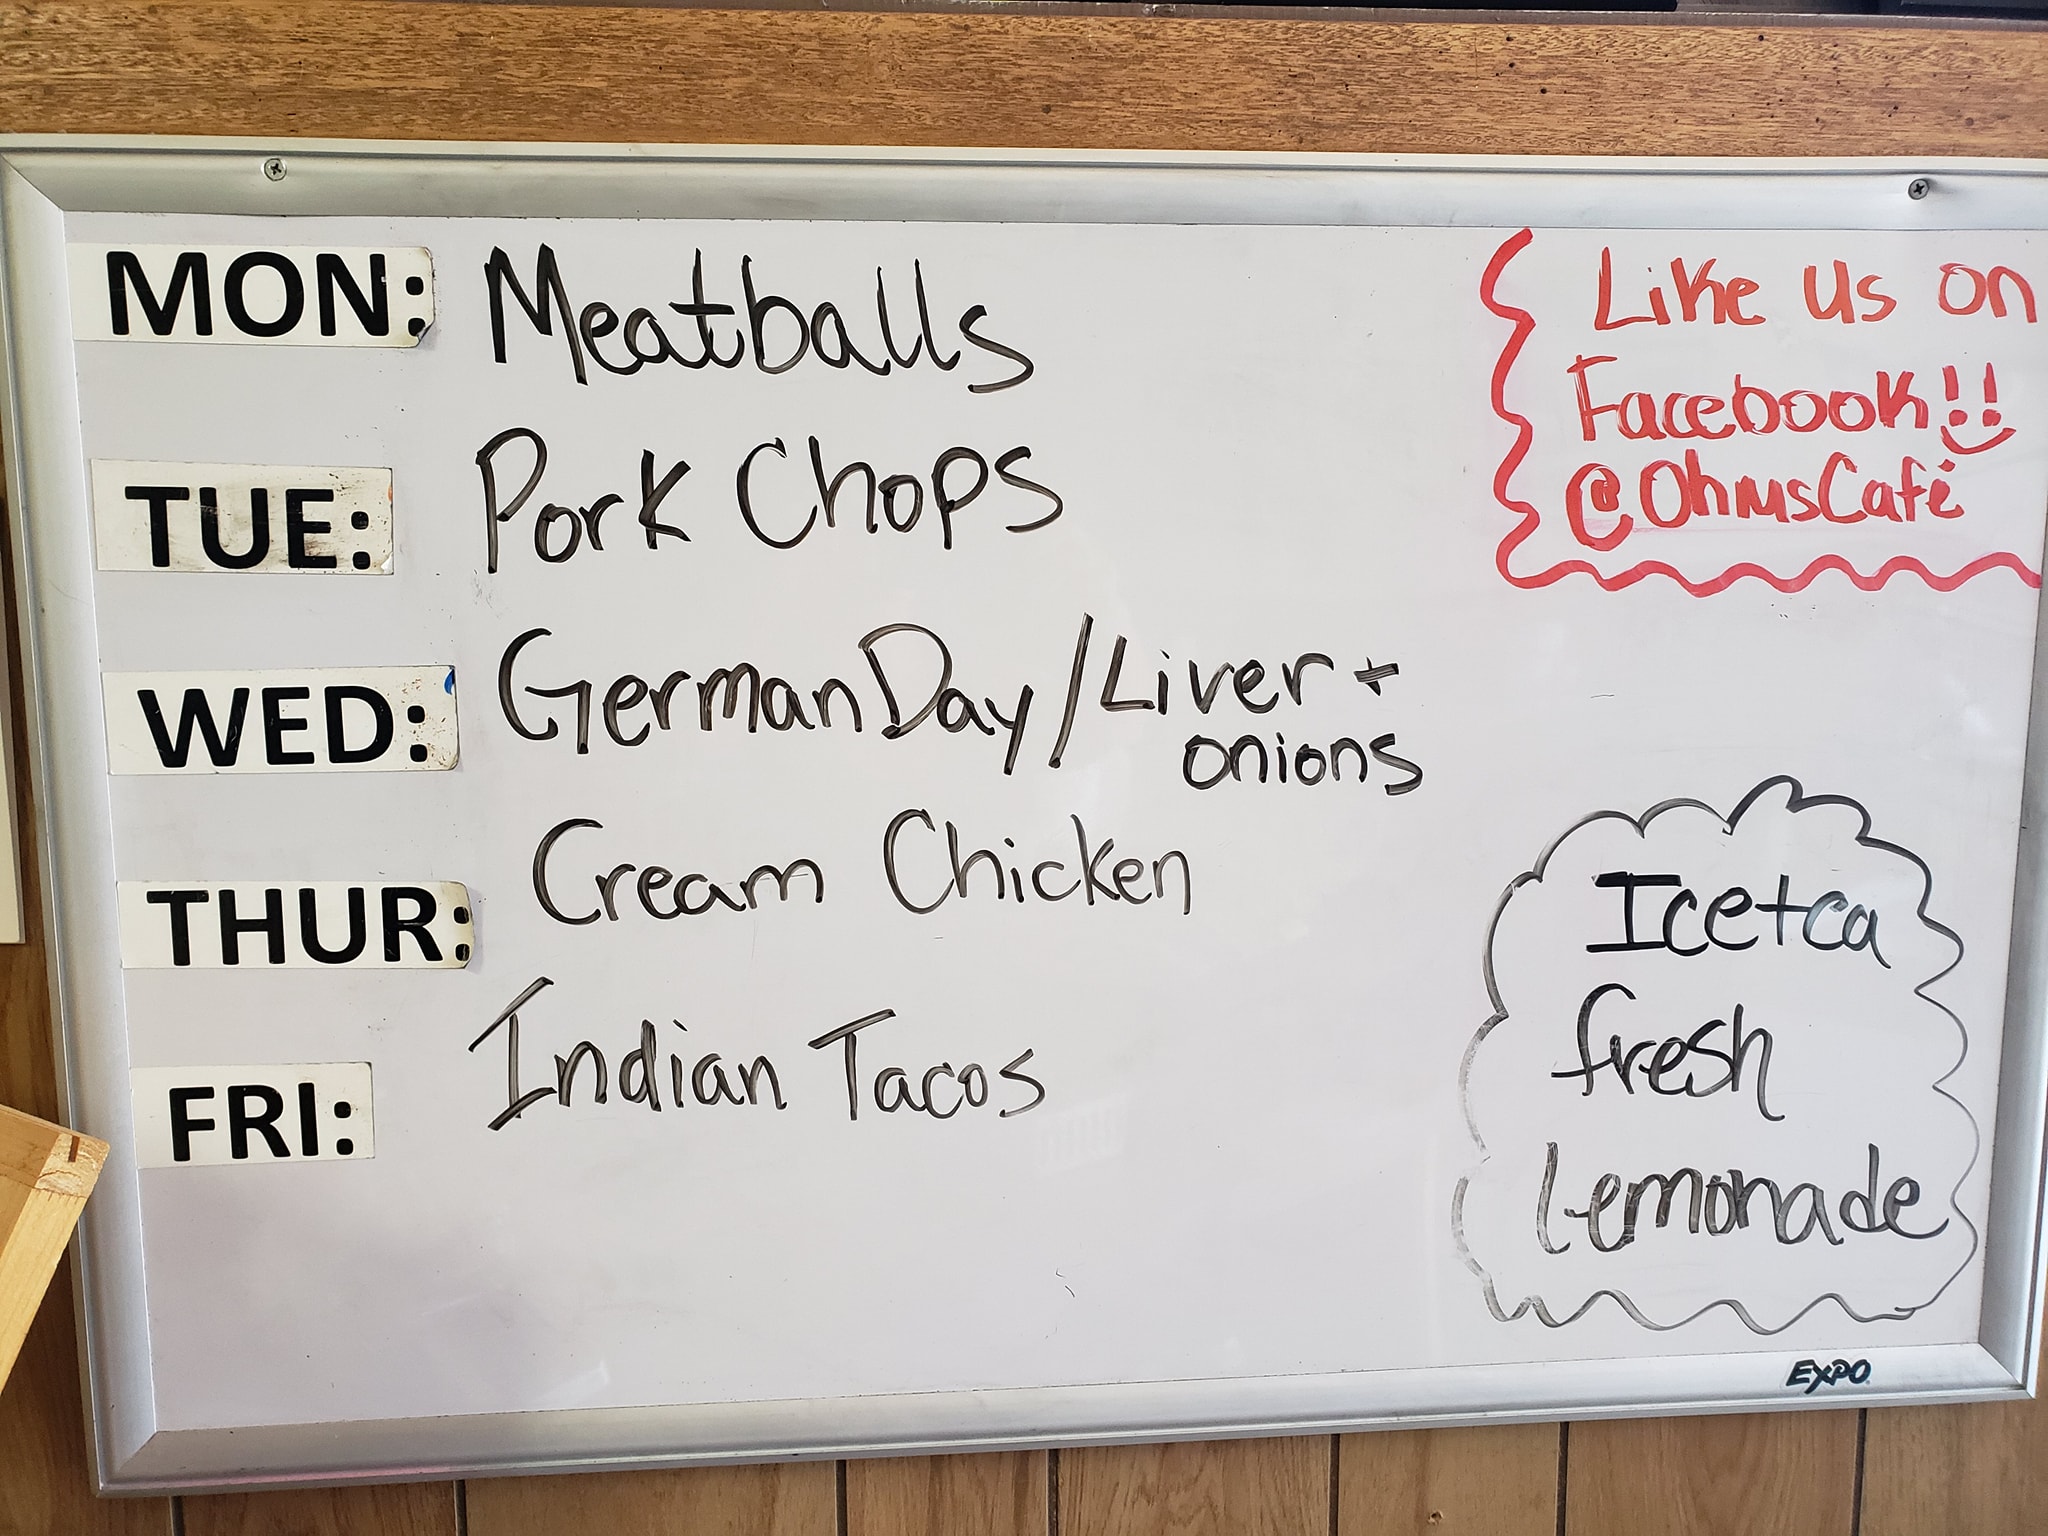 MON: Meatballs
TUE: Pork Chops
WED: German Day / Liver +
onions
THUR: Cream Chicken
FRI: Indian Tacos
Like us on
Facebook!!
@OhmsCafé
Icetea
fresh
Lemonade
EXPO